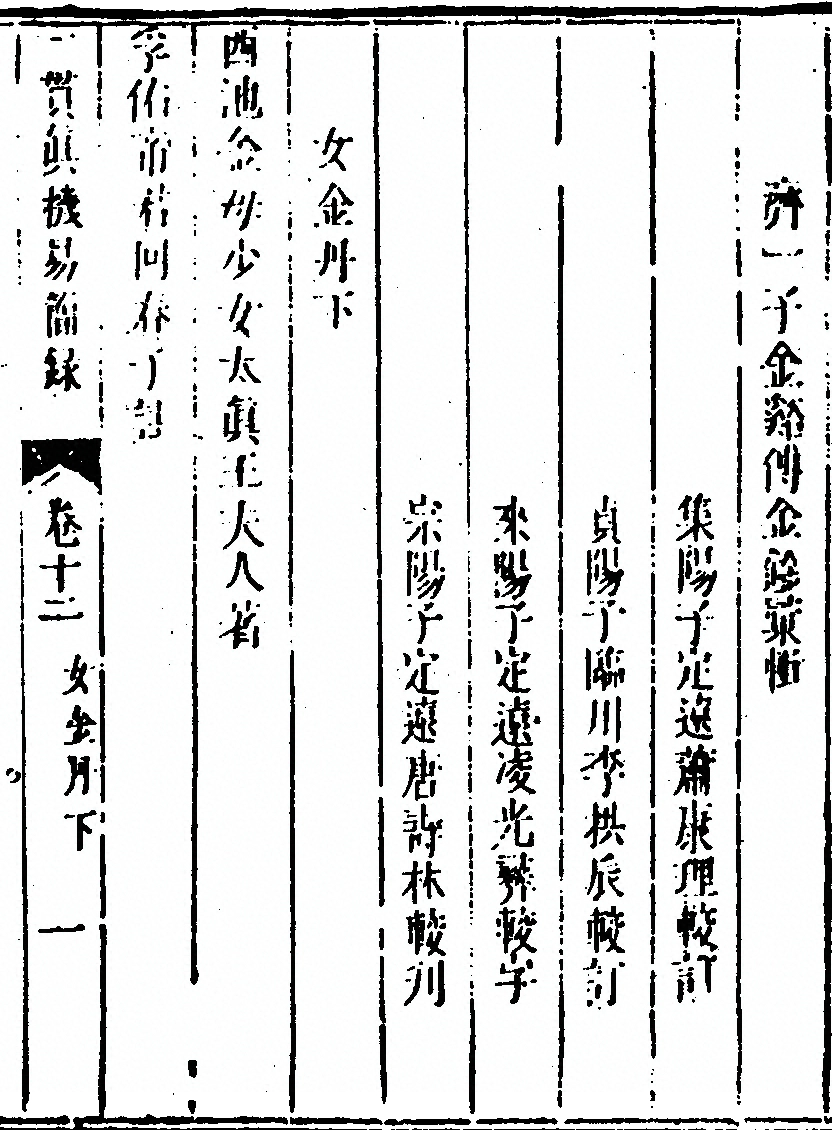 濟一子金谿傅金銓彙輯
集陽子定遠蕭康理較訂
貞陽子臨川李栱辰較訂
來陽子定遠凌光彝較字
宗陽子定遠唐詩林較刊
女金丹下
西池金母少女太眞王夫人著
李佑帝君回春子
一貫眞機易簡錄
卷十二
女金丹下
一